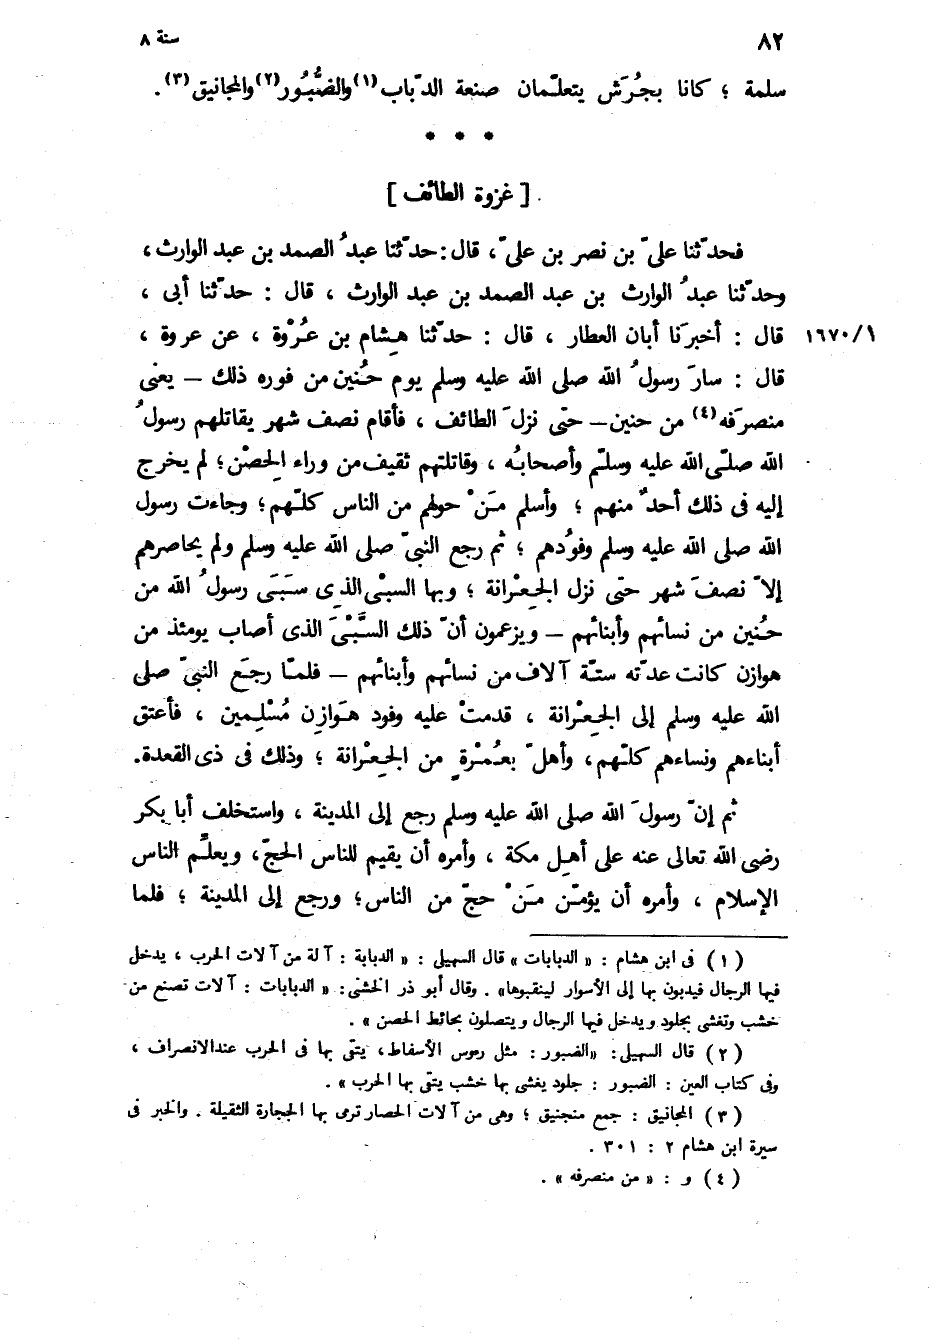 ٨٢
سنة ٨
سلمة ؛ كانا بجُرَش يتعلّمان صنعة الدّباب(١) والضُّبُور(٢) والمجانيق(٣).
* * *
[ غزوة الطائف ]
فحدّثنا علىّ بن نصر بن علىّ، قال: حدّثنا عبدُ الصمد بن عبد الوارث،
وحدّثنا عبدُ الوارث بن عبد الصمد بن عبد الوارث ، قال : حدّثنا أبى ،
قال : أخبرَنا أبان العطار ، قال : حدّثنا هِشام بن عُرْوة ، عن عروة ، ١٦٧٠/١
قال : سارَ رسولُ الله صلى الله عليه وسلم يوم حُنين من فوره ذلك – يعنى
منصرَفه(٤) من حنين– حتّى نزلَ الطائف ، فأقام نصف شهر يقاتلهم رسولُ
الله صلّى الله عليه وسلّم وأصحابُه ، وقاتلتهم ثقيف من وراء الحِصْن؛ لم يخرج
إليه فى ذلك أحدٌ منهم ؛ وأسلم مَنْ حولهم من الناس كلّهم؛ وجاءت رسول
الله صلى الله عليه وسلم وفودُهم ؛ ثم رجع النبىّ صلى الله عليه وسلم ولم يحاصرهم
إلاّ نصفَ شهر حتّى نزل الجِعْرانة ؛ وبها السبْى الذى سَبَى رسولُ الله من
حُنين من نسائهم وأبنائهم – ويزعمون أنّ ذلك السَّبْىَ الذى أصاب يومئذ من
هوازن كانت عدّته ستّة آلاف من نسائهم وأبنائهم – فلمّا رجَع النبىّ صلى
الله عليه وسلم إلى الجِعْرانة ، قدمتْ عليه وفود هَوازِن مُسْلِمين ، فأعتق
أبناءهم ونساءهم كلّهم، وأهلّ بعُمْرةٍ من الجِعْرانة ؛ وذلك فى ذى القعدة.
ثم إنّ رسولَ الله صلى الله عليه وسلم رجع إلى المدينة ، واستخلف أبا بكر
رضى الله تعالى عنه على أهلِ مكة ، وأمره أن يقيم للناس الحجّ، ويعلّم الناس
الإسلام ، وأمره أن يؤمّن مَنْ حجّ من الناس؛ ورجع إلى المدينة ؛ فلما
(١) فى ابن هشام : « الدبابات » قال السهيلى : « الدبابة : آلة من آلات الحرب ، يدخل
فيها الرجال فيدبون بها إلى الأسوار لينقبوها» . وقال أبو ذر الخشنى: « الدبابات : آلات تصنع من
خشب وتغشى بجلود ويدخل فيها الرجال ويتصلون بحائط الحصن » .
(٢) قال السهيلى: «الضبور : مثل رءوس الأسفاط، يتّقى بها فى الحرب عند الانصراف ،
وفى كتاب العين : الضبور : جلود يغشى بها خشب يتّقى بها الحرب » .
(٣) المجانيق : جمع منجنيق ؛ وهى من آلات الحصار ترمى بها الحجارة الثقيلة . والخبر فى
سيرة ابن هشام ٢ : ٣٠١ .
(٤) و : « من منصرفه » .